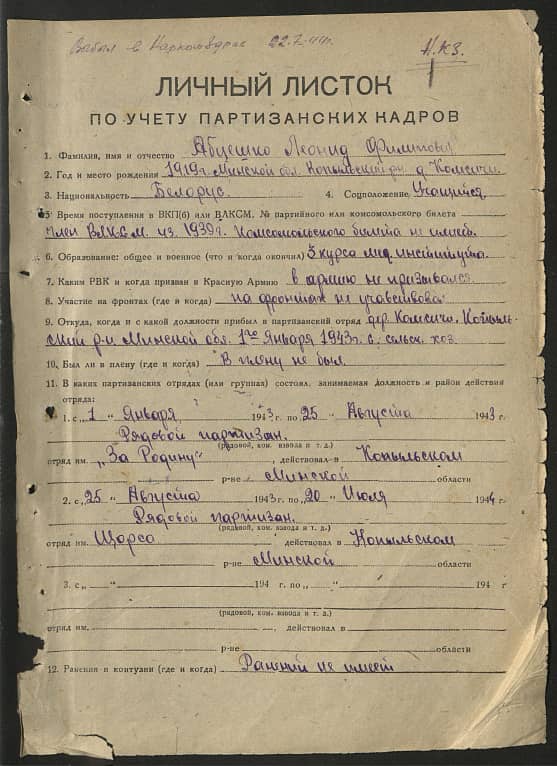 Выбыл в Наркомздрав 22.7-44г.
Н.К.З.
ЛИЧНЫЙ ЛИСТОК
ПО УЧЕТУ ПАРТИЗАНСКИХ КАДРОВ
1. Фамилия, имя и отчество Абцешко Леонид Филипович
2. Год и место рождения 1919г. Минской обл. Копыльский р-н д. Комсичи
3. Национальность Белорус. 4. Соцположение Учащийся
5 Время поступления в ВКП(б) или ВЛКСМ, № партийного или комсомольского билета
Член ВЛКСМ. из 1939г. Комсомольского билета не имеет.
6. Образование: общее и военное (что и когда окончил) 3 курса мед. института.
7. Каким РВК и когда призван в Красную Армию в армию не призывался.
8. Участие на фронтах (где и когда) на фронтах не учавствовал
9. Откуда, когда и с какой должности прибыл в партизанский отряд дер. Комсичи. Копыль-
ский р-н Минской обл. 1го Января 1943г. с. сельск. хоз.
10. Был ли в плену (где и когда) В плену не был.
11. В каких партизанских отрядах (или группах) состоял, занимаемая должность и район действия
отряда:
1. с „ 1 " Января 1943 г. по „ 25 " Августа 1943 г.
Рядовой партизан.
(рядовой, ком. взвода и т. д.)
отряд им. „За Родину" , действовал в Копыльском
р-не Минской области
2. с „ 25 " Августа 1943 г. по „ 20 " Июля 1944 г.
Рядовой партизан.
(рядовой, ком. взвода и т. д.)
отряд им. Щорса действовал в Копыльском
р-не Минской области
3. с „ " 194 г. по „ " 194 г
(рядовой, ком. взвода и т. д.)
отряд им. , действовал в
р-не области
12. Ранения и контузии (где и когда) Ранений не имеет